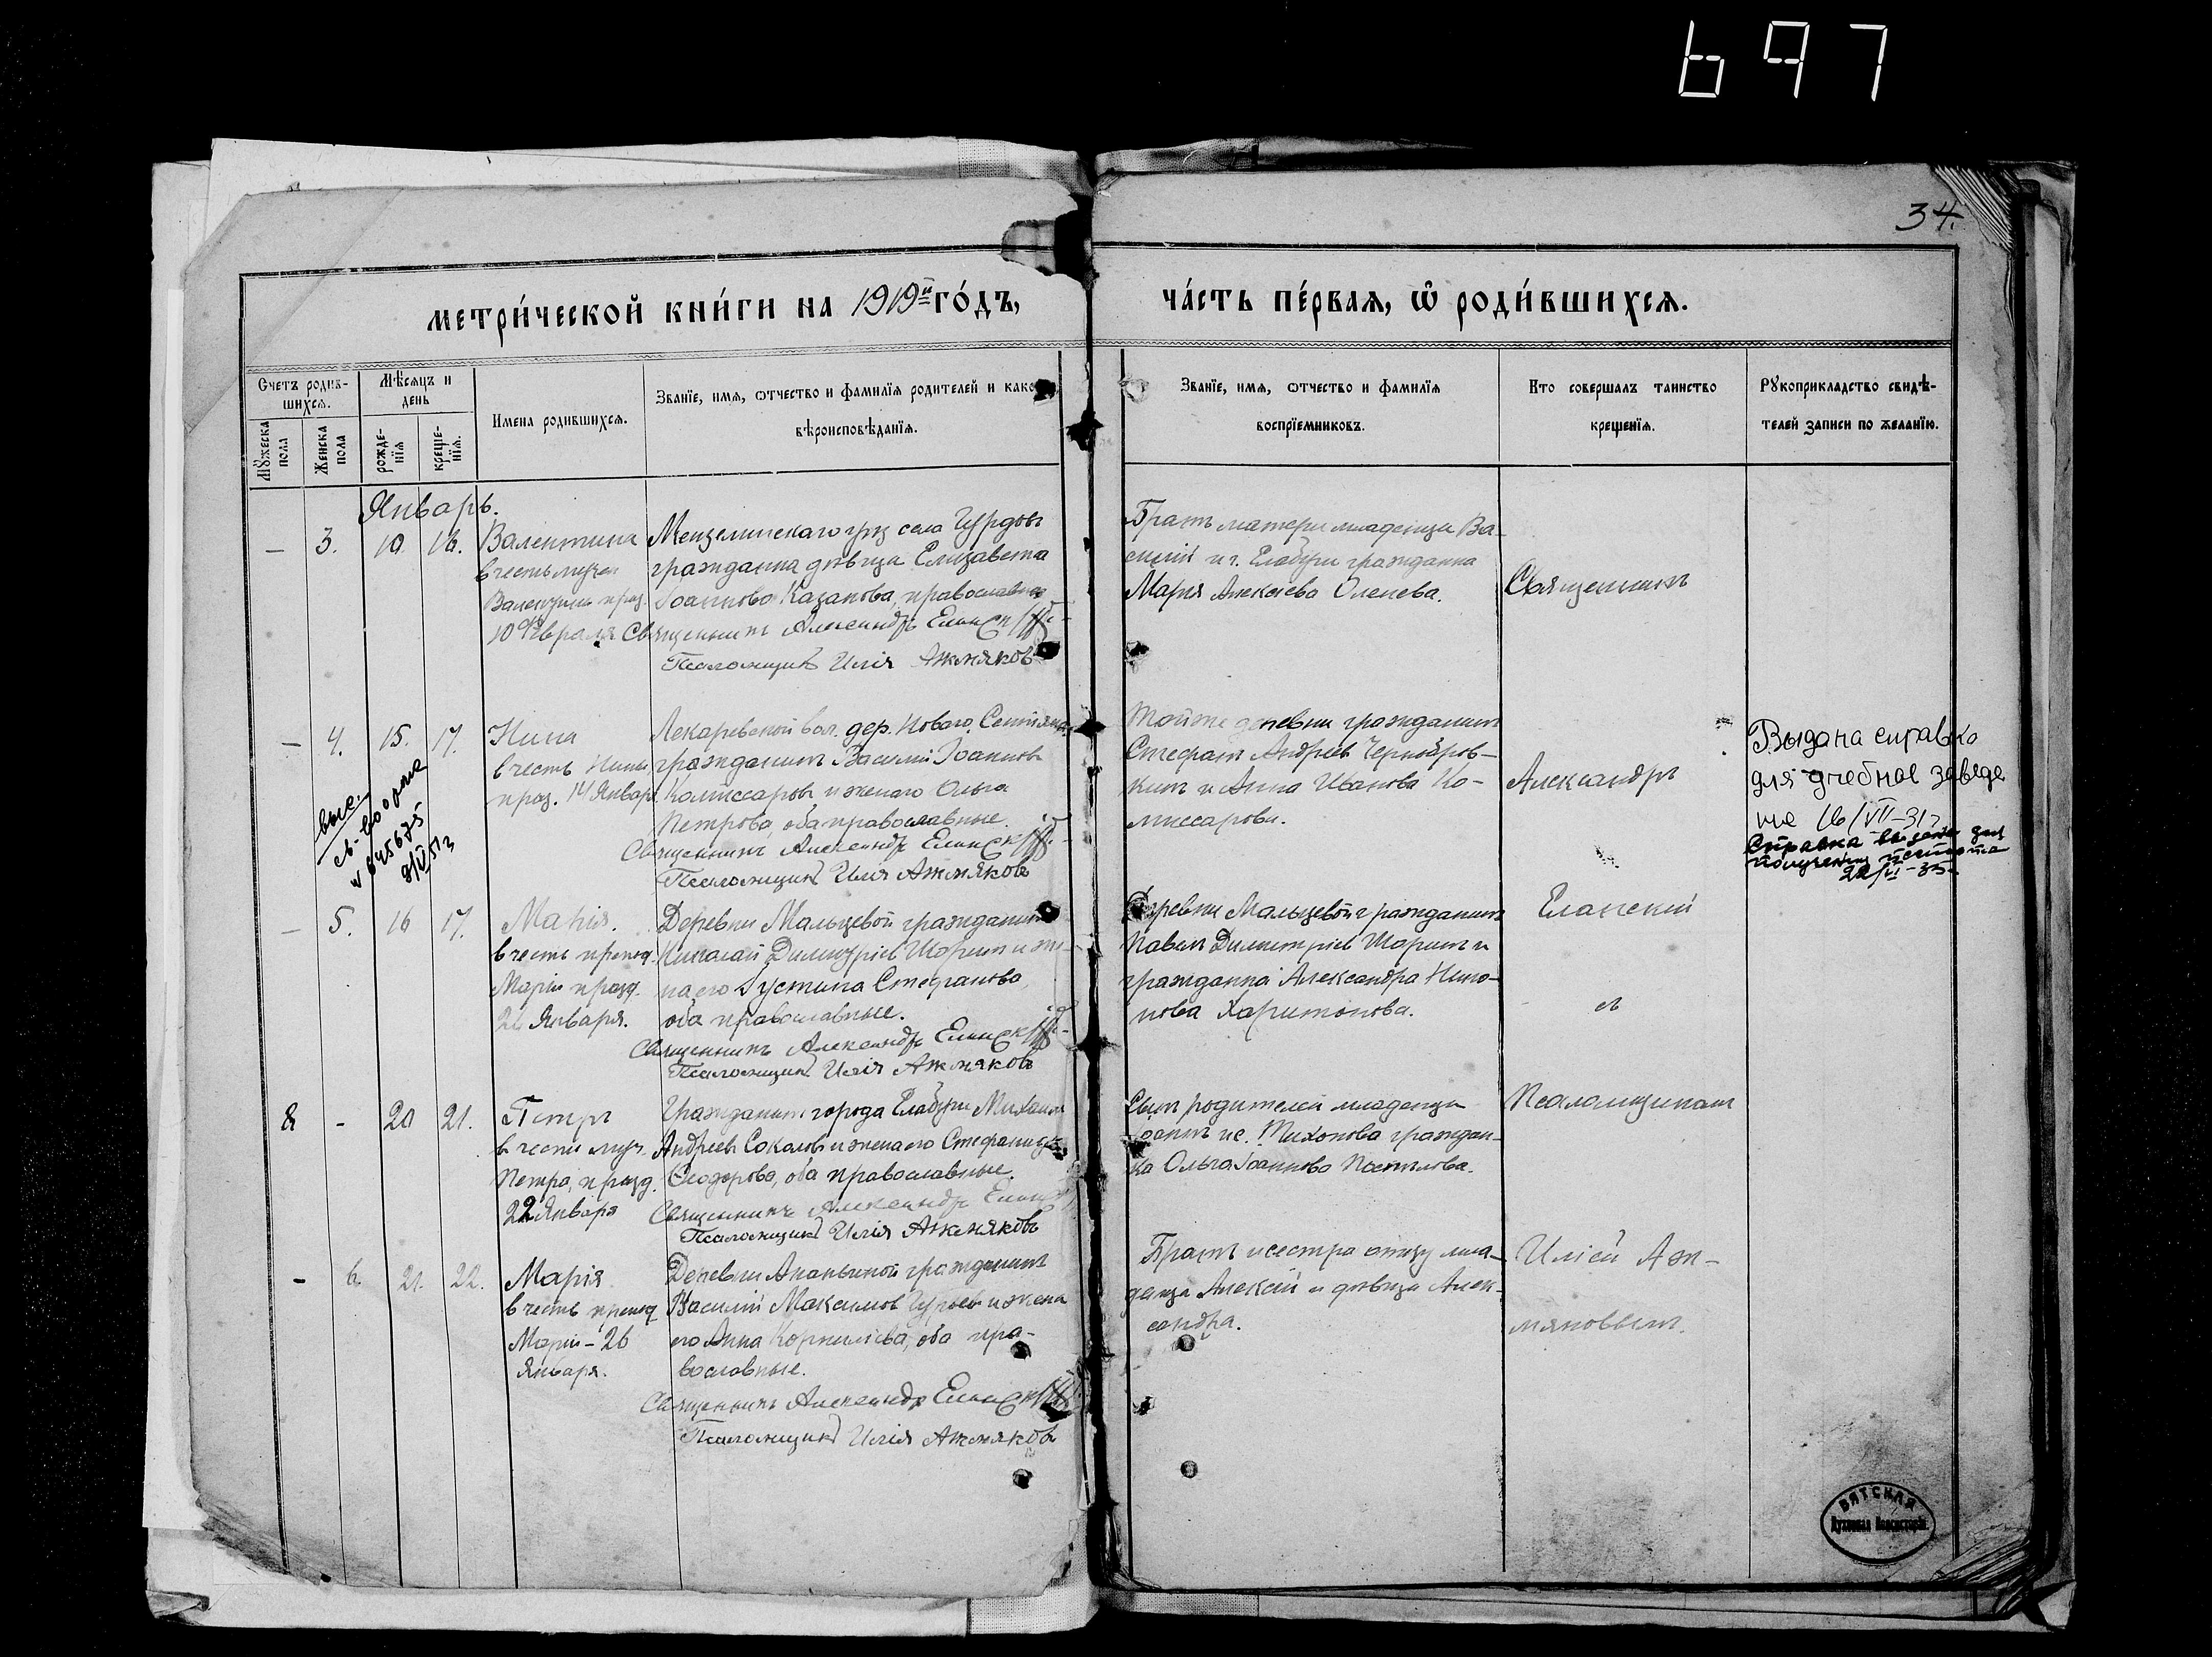 697
34.
метри́ческой кни́ги на 1919й го́дъ,
ча́сть пе́рвая, ѿ роди́вшихся.
Счетъ родив-
шихся.
Мꙋжеска
пола
Женска
пола
Мѣсяцъ и
день
рожде-
нїя
креще-
нїя.
Имена родившихся.
Званїе, имя, ѡтчество и фамилїя родителей и како
вѣроисповѣданїя.
Званїе, имя, ѡтчество и фамилїя
воспрїемниковъ.
Кто совершалъ таинство
крещенїя.
Рꙋкоприкладство свидѣ-
телей записи по желанїю.
Январь.
– 3. 10. 16. Валентина
в честь
Валентины праз.
10 Февраля
Мензелинскаго села
гражданка дѣвица Елизавета
Іоаннова Казакова, православная
Священникъ Александръ
Псаломщикъ Илія Ажмяковъ
Братъ матери младенца Ва-
силій и г. Елабуги гражданка
Мария Алексѣева Оленева.
Священникъ
– 4. 15. 17. Нина
в честь Нины,
праз. 14 Января
Лекаревской вол. дер. Новаго
гражданинъ Василій Іоанновъ
Комиссаровъ и жена его Ольга
Петрова, оба православные.
Священникъ Александръ
Псаломщикъ Илія Ажмяковъ
Тойже деревни гражданинъ
Стефанъ Андреевъ
и Анна Иванова Ко-
миссарова.
Александръ
Выдана справка
для учебнае заведе
ние 16/VII-31г
Справка выдана для
получения паспорта
22/VI-35
– 5. 16 17. Марія.
в честь препод.
Маріи празд.
26 Января.
Деревни Мальцевой гражданинъ
Николай Димитріевъ Шаринъ и же-
на его Іустина Стефанова,
оба православные.
Священникъ Александръ
Псаломщикъ Илія Ажмяковъ
Деревни Мальцевой гражданинъ
Павелъ Димитріевъ Шаринъ и
гражданка Александра Нико-
нова Харитонова.
Еланскій
съ
8 - 20 21. Петръ
в честь муч.
Петра, празд.
22 Января
Гражданинъ города Елабуги Михаилъ
Андреевъ Соколовъ и жена его Стефанида
Ѳеодорова, оба православные.
Священникъ Александръ
Псаломщикъ Илія Ажмяковъ
Сынъ родителей младенца
Іоаннъ и с. Тихонова граждан-
ка Ольга Іоаннова
Псаломщикомъ
– 6. 21. 22. Марія
в честь препод
Маріи – 26
Января.
Деревни Ананьиной гражданинъ
Василій Максимовъ Гурьевъ и жена
его Анна Корнилієва, оба пра-
вославные.
Священникъ Александръ
Псаломщикъ Илія Ажмяковъ
Братъ и сестра отцу мла-
денца Алексѣй и дѣвица Алек-
сандра.
Иліей Аж-
мяковымъ.
ВЯТСКАЯ
Духовная Консисторія.